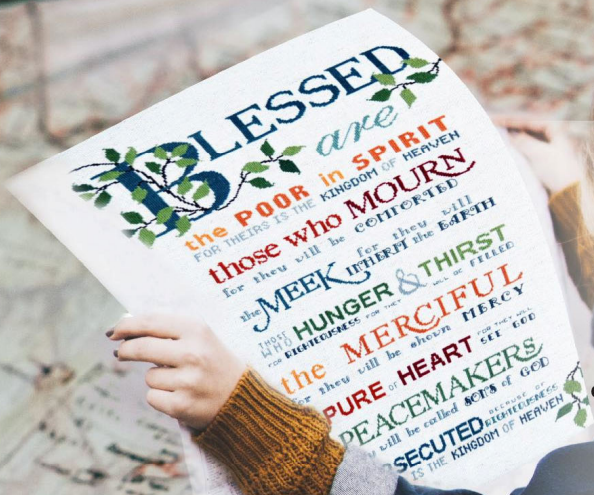 BLESSED
are
the POOR in SPIRIT
FOR THEIRS IS THE KINGDOM OF HEAVEN
those who MOURN
for they will be COMFORTED
the MEEK for they will
INHERIT the EARTH
THOSE WHO HUNGER & THIRST
FOR RIGHTEOUSNESS FOR THEY WILL BE FILLED
the MERCIFUL
for they will be shown MERCY
PURE OF HEART FOR THEY WILL
SEE GOD
PEACEMAKERS
will be called SONS of GOD
SECUTED BECAUSE OF
RIGHTEOUSNESS
IS THE KINGDOM OF HEAVEN